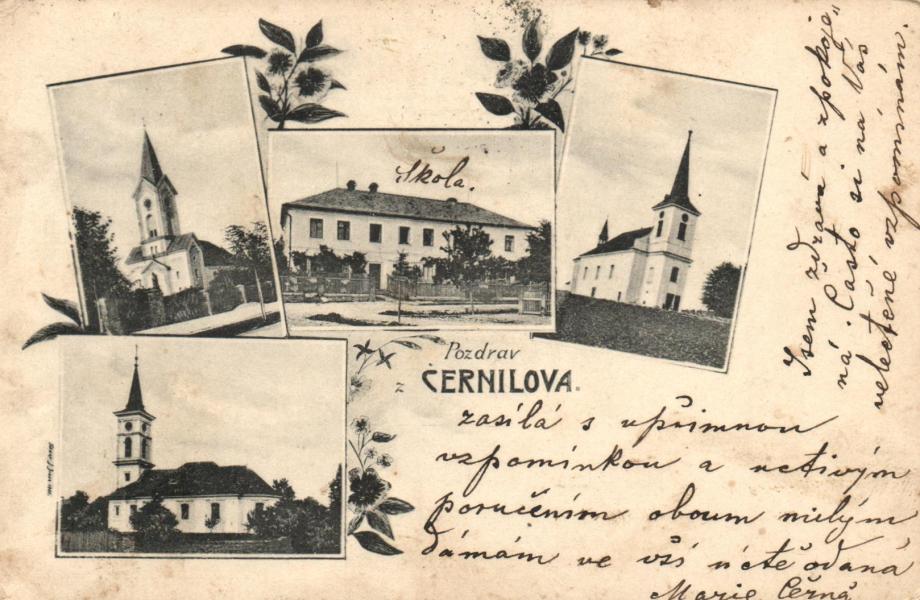 Škola.
Pozdrav
z ČERNILOVA.
zasílá s upřimnou
vzpomínkou a uctivým
poručením oboum milým
dámám ve vší úctě oddaná
Marie Černá
Jsem zdravá a spokoje„
ná. Často si na Vás
velectěné vzpomínám.